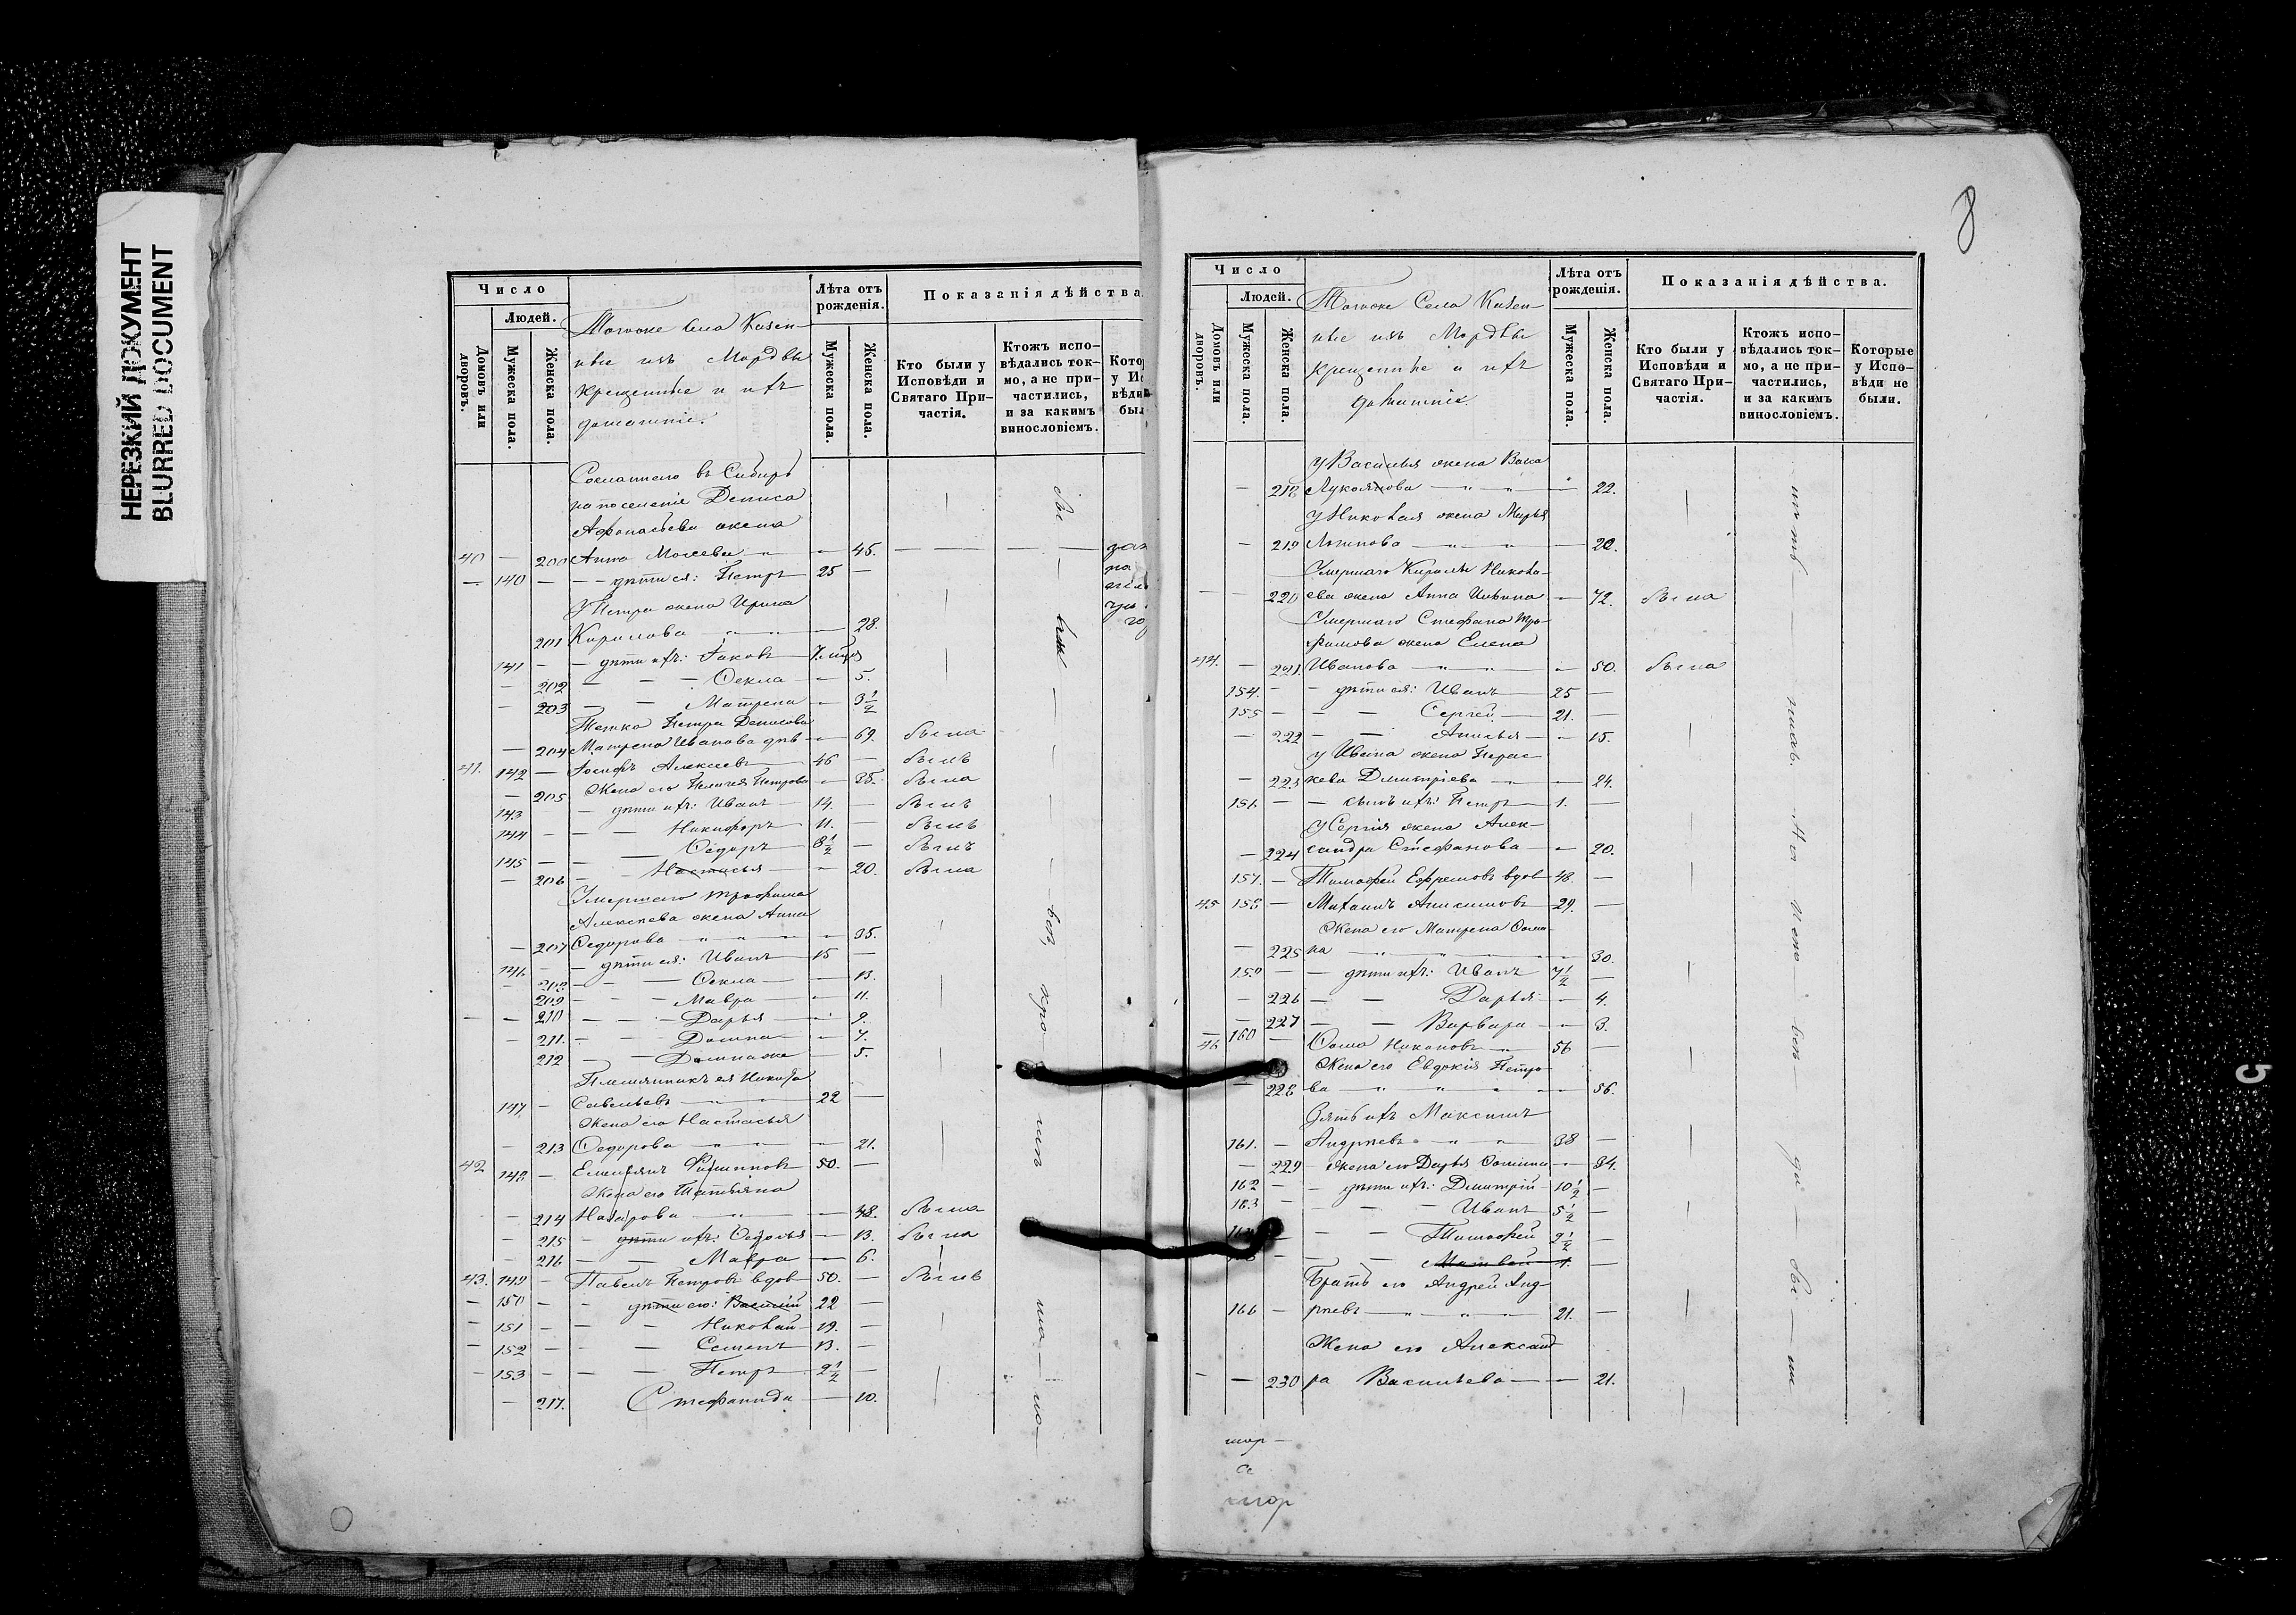 НЕРЕЗКИЙ ДОКУМЕНТ
BLURRED DOCUMENT
Число
Людей.
Домовъ или дворовъ.
Мужеска пола.
Женска пола.
Тогоже Села Казен-
ные изъ Мордвы
крещенные и ихъ
домашніе.
Лѣта отъ рожденія.
Мужеска пола.
Женска пола.
Показанія дѣйства
Кто были у Исповѣди и Святаго При-частія.
Ктожъ испо-вѣдались ток-мо, а не при-частились, и за какимъ винословіемъ.
Сосланнаго въ Сибирь
на поселеніе Дениса
Афонасьева жена
40 — 200 Анна Моисеева — 45.
— 140 — дѣти ея: Петръ 25 —
У Петра жена Ирина
201 Кирилова — 28.
141 — дѣти ихъ: Іаковъ
— 202 — Ѳекла — 5.
— 203 — Матрена — 3½
Тетка Петра Денисова
— 204 Матрена Иванова — 69. была
41. 142 — Іосифъ Алексѣевъ 46 — былъ
— 205 Жена его Пелагея Петрова — 35. была
143 — дѣти ихъ: Иванъ 14. — былъ
144 — Никифоръ 11. — былъ
145 — Ѳедоръ 8½ — былъ
— 206 — Настасья — 20. была
Умершаго Трофима
Алексѣева жена Анна
— 207 Ѳедорова — 35.
146 — дѣти ея: Иванъ 15 —
— 208 — Ѳекла — 13.
209 — Мавра — 11.
— 210 — Дарья — 9.
— 211. — Домна — 7.
212 — Домна же — 5.
Племянникъ ея Никифоръ
147 — Савельевъ 22 —
Жена его Настасья
— 213 Ѳедорова — 21.
42 148 — Емельянъ Филиповъ 50. —
Жена его Татьяна
— 214 Назарова — 48. была
— 215 — дѣти ихъ: Ѳедосья — 13. была
— 216 — Мавра — 6.
43. 149 — Павелъ Петровъ вдов 50. — былъ
— 150 — дѣти его: Василій 22 —
— 151 — Николай 19. —
— 152 — Семенъ 13. —
— 153 — Петръ 2½ —
— 217. Стефанида — 10.
8
Число
Людей.
Домовъ или дворовъ.
Мужеска пола.
Женска пола.
Тогоже Села Казен-
ные изъ Мордвы
крещенные и ихъ
домашніе.
Лѣта отъ рожденія.
Мужеска пола.
Женска пола.
Показанія дѣйства.
Кто были у Исповѣди и Святаго При-частія.
Ктожъ испо-вѣдались ток-мо, а не при-частились, и за какимъ винословіемъ.
Которые у Испо-вѣди не были.
У Василья жена Васса
— 218 Лукоянова — 22.
У Николая жена Марья
— 219 Логинова — 20.
Умершаго Кирилы Никола-
— 220 ева жена Анна Ильина — 72. была
Умершаго Стефана Тро-
фимова жена Елена
44. — 221. Иванова — 50. была
154. — дѣти ея: Иванъ 25 —
155 — Сергей 21. —
— 222 — Анисья — 15.
У Ивана жена Парас-
— 223 кева Дмитріева — 24.
156. — сынъ ихъ: Петръ 1. —
У Сергія жена Алек-
— 224 сандра Стефанова — 20.
157. — Тимофей Ефремовъ вдов 48. —
45 158 — Михаилъ Анисимовъ 29. —
Жена его Матрена Ѳоми-
— 225 на — 30.
159 — дѣти ихъ: Иванъ 7½ —
— 226 — Дарья — 4.
— 227 — Варвара — 3.
46 160 — Ѳома Никоновъ 56 —
Жена его Евдокія Петро-
— 228 ва — 56.
Зять ихъ Максимъ
161. — Андреевъ 38 —
— 229 — жена его Дарья Ѳомина — 34.
162 — дѣти ихъ: Дмитрій 10½ —
163 — Иванъ 5½ —
— Тимофей 2½ —
— Матвей 1. —
Братъ его Андрей Анд-
166 — реевъ 21. —
Жена его Александ-
— 230 ра Васильева — 21.
5